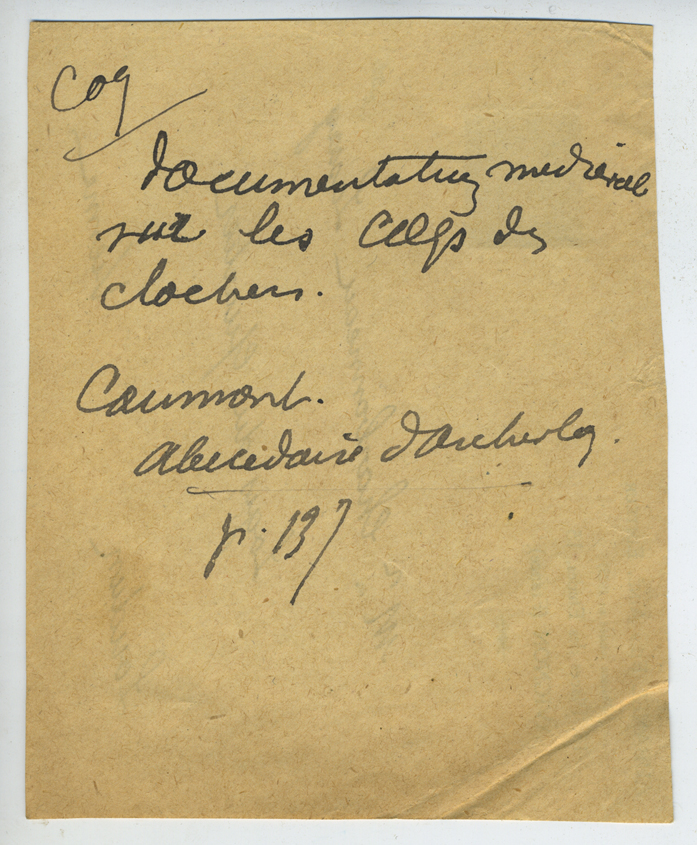 Coq
documentation médiéval
sur les coqs des
clochers.
Caumont.
Abecedaire d'Archeolog.
p. 137